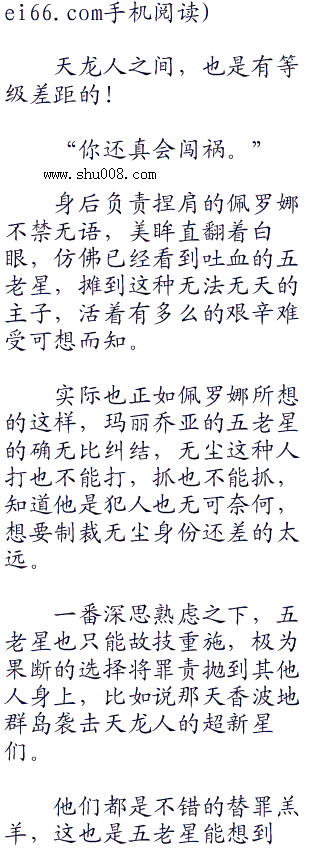 ei66.com手机阅读)
天龙人之间，也是有等
级差距的！
“你还真会闯祸。”
www.shu008.com
身后负责捏肩的佩罗娜
不禁无语，美眸直翻着白
眼，仿佛已经看到吐血的五
老星，摊到这种无法无天的
主子，活着有多么的艰辛难
受可想而知。
实际也正如佩罗娜所想
的这样，玛丽乔亚的五老星
的确无比纠结，无尘这种人
打也不能打，抓也不能抓，
知道他是犯人也无可奈何，
想要制裁无尘身份还差的太
远。
一番深思熟虑之下，五
老星也只能故技重施，极为
果断的选择将罪责抛到其他
人身上，比如说那天香波地
群岛袭击天龙人的超新星
们。
他们都是不错的替罪羔
羊，这也是五老星能想到